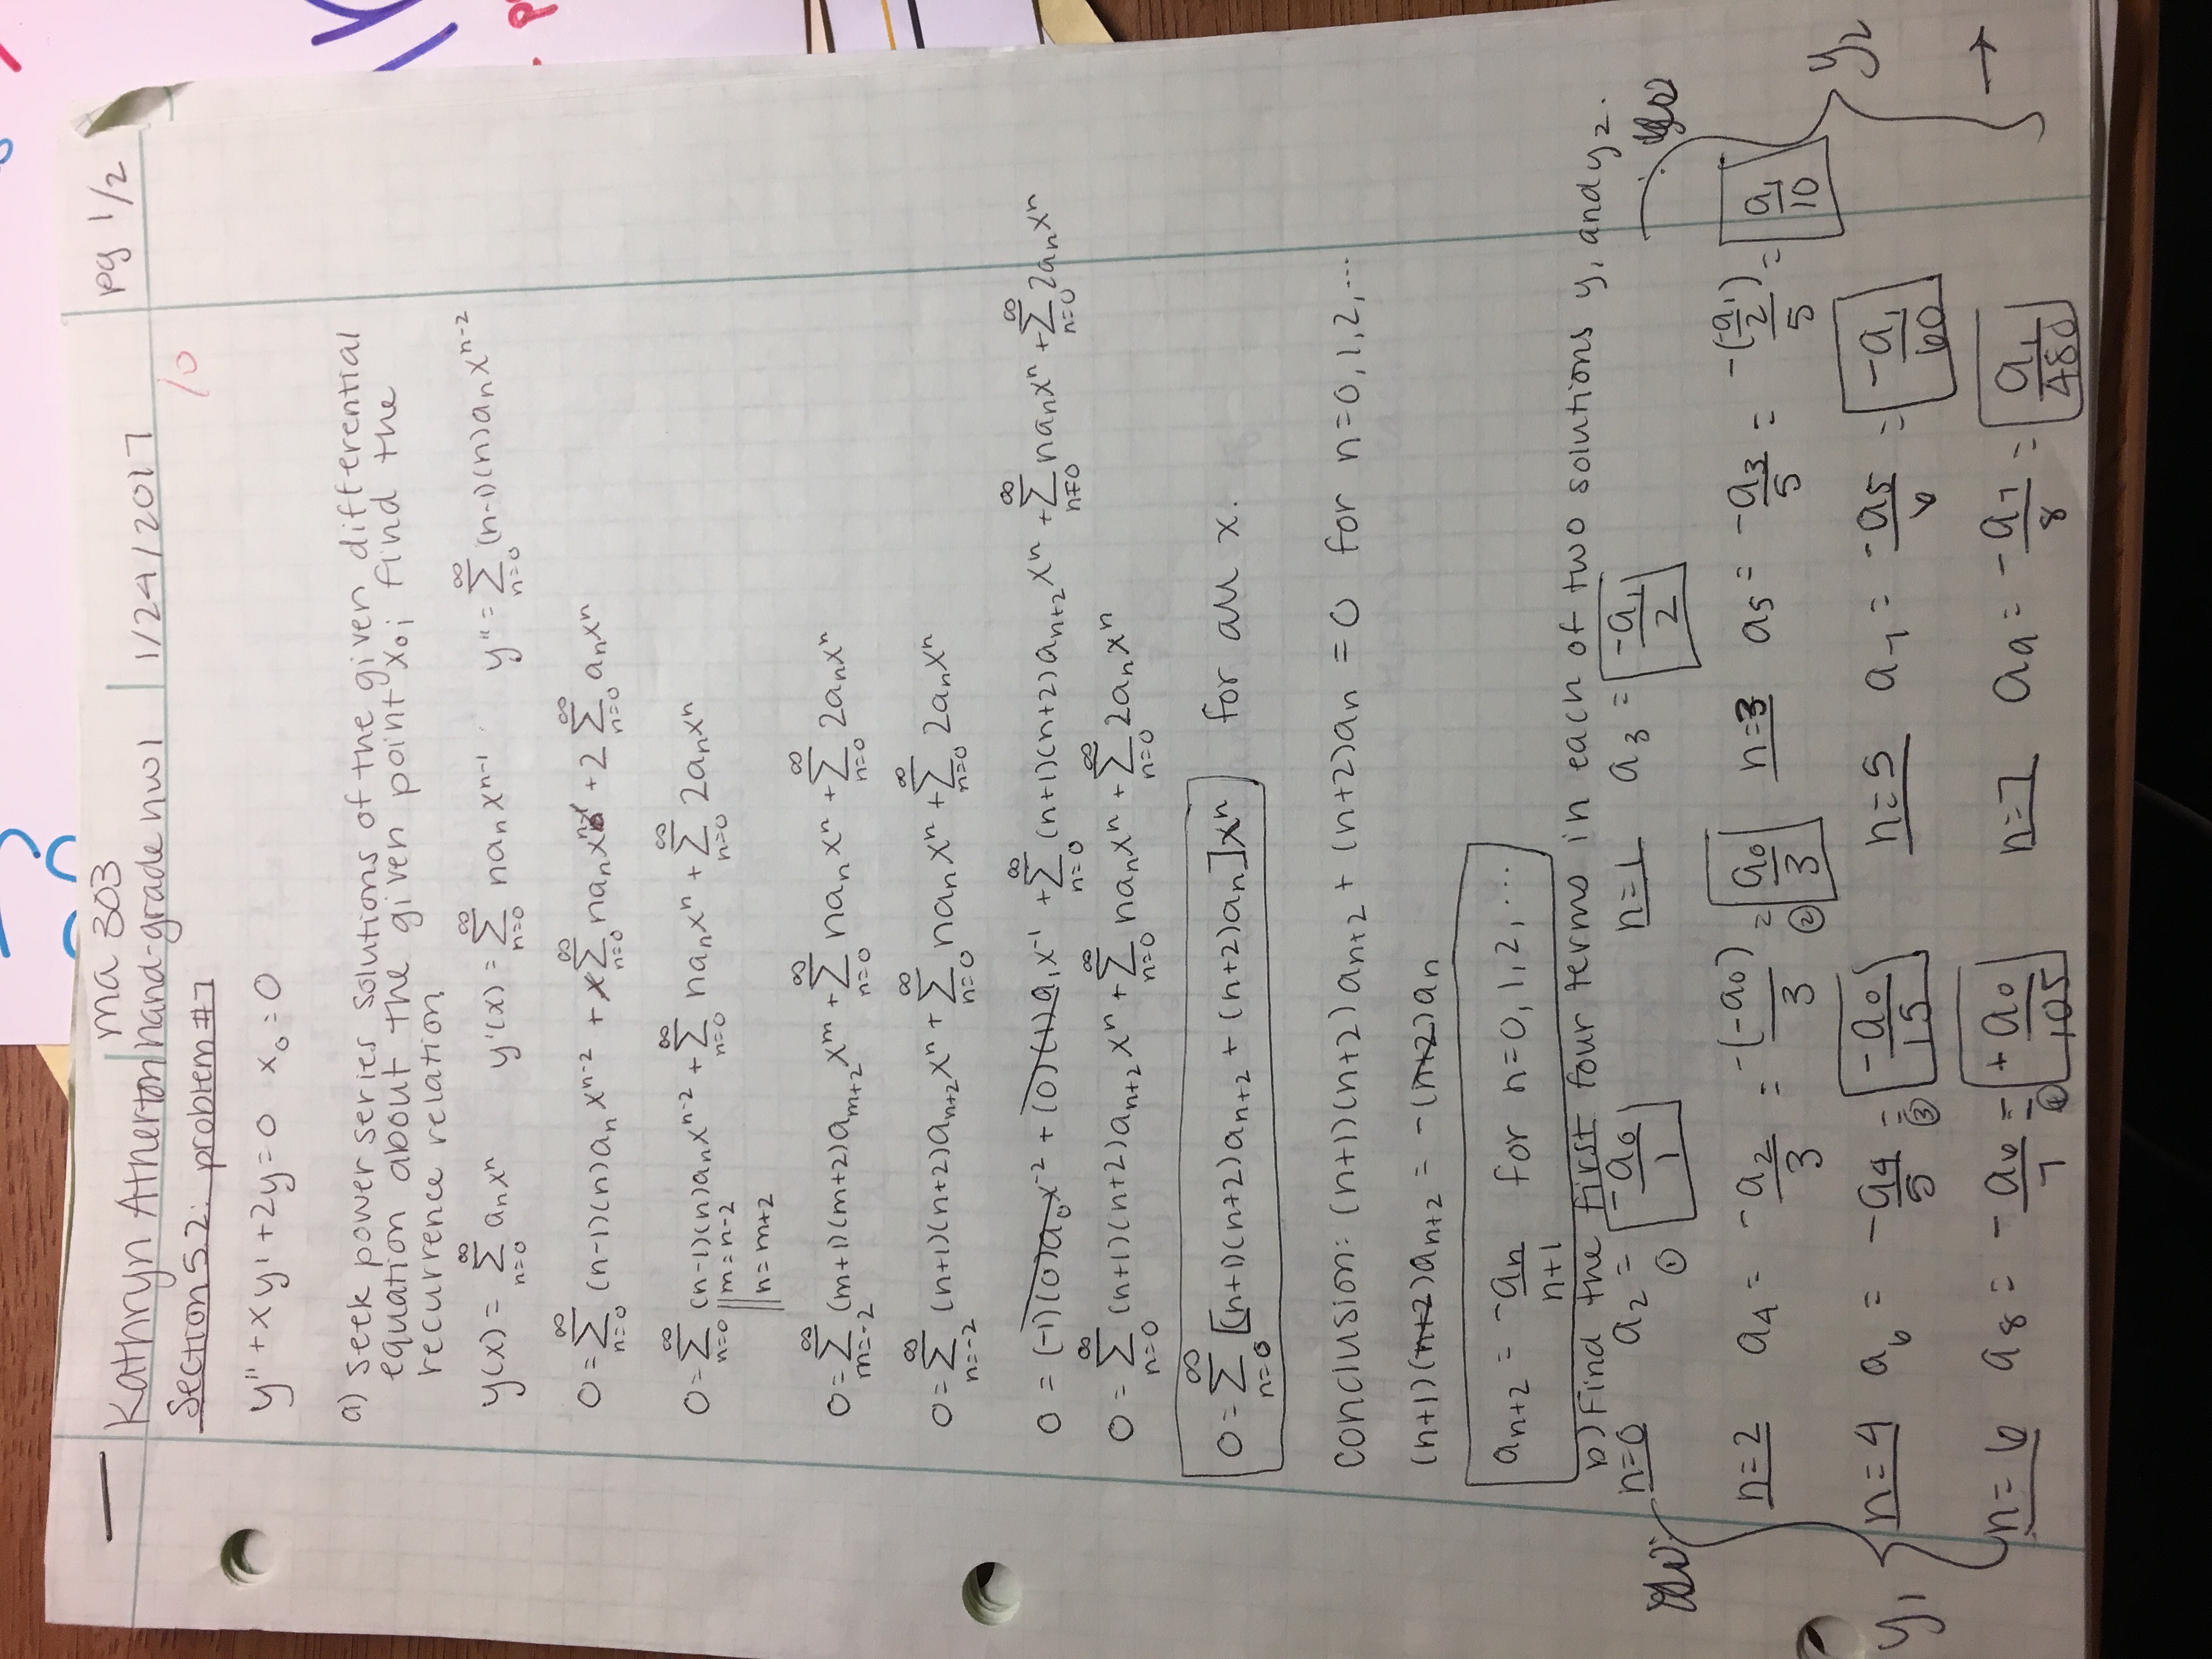 ma 303
Kathryn Atherton hand-grade hw1 1/24/2017 pg 1/2
10
Section 5.2: problem #7
y'' + xy' + 2y = 0 x₀ = 0
a) seek power series solutions of the given differential
equation about the given point x₀; find the
recurrence relation.
y(x) = ∑_{n=0}^{∞} aₙxⁿ y'(x) = ∑_{n=0}^{∞} naₙxⁿ⁻¹ y'' = ∑_{n=0}^{∞} (n-1)(n)aₙxⁿ⁻²
0 = ∑_{n=0}^{∞} (n-1)(n)aₙxⁿ⁻² + x∑_{n=0}^{∞} naₙxⁿ⁻¹ + 2∑_{n=0}^{∞} aₙxⁿ
0 = ∑_{n=0}^{∞} (n-1)(n)aₙxⁿ⁻² + ∑_{n=0}^{∞} naₙxⁿ + ∑_{n=0}^{∞} 2aₙxⁿ
m = n-2
n = m+2
0 = ∑_{m=-2}^{∞} (m+1)(m+2)a_{m+2}x^m + ∑_{n=0}^{∞} naₙxⁿ + ∑_{n=0}^{∞} 2aₙxⁿ
0 = ∑_{n=-2}^{∞} (n+1)(n+2)a_{n+2}xⁿ + ∑_{n=0}^{∞} naₙxⁿ + ∑_{n=0}^{∞} 2aₙxⁿ
0 = (-1)(0)a₀x⁻² + (0)(1)a₁x⁻¹ + ∑_{n=0}^{∞} (n+1)(n+2)a_{n+2}xⁿ + ∑_{n=0}^{∞} naₙxⁿ + ∑_{n=0}^{∞} 2aₙxⁿ
0 = ∑_{n=0}^{∞} (n+1)(n+2)a_{n+2}xⁿ + ∑_{n=0}^{∞} naₙxⁿ + ∑_{n=0}^{∞} 2aₙxⁿ
0 = ∑_{n=0}^{∞} [(n+1)(n+2)a_{n+2} + (n+2)aₙ]xⁿ for all x.
conclusion: (n+1)(n+2)a_{n+2} + (n+2)aₙ = 0 for n=0,1,2,...
(n+1)(n+2)a_{n+2} = -(n+2)aₙ
a_{n+2} = -aₙ/(n+1) for n=0,1,2,...
b) Find the first four terms in each of two solutions y₁ and y₂.
n=0 a₂ = ① -a₀/1 n=1 a₃ = -a₁/2
n=2 a₄ = -a₂/3 = -(-a₀)/3 = ② a₀/3 n=3 a₅ = -a₃/5 = -(-a₁/2)/5 = a₁/10
y₁ n=4 a₆ = -a₄/5 = ③ -a₀/15 n=5 a₇ = -a₅/6 = -a₁/60 y₂
n=6 a₈ = -a₆/7 = ④ +a₀/105 n=7 a₉ = -a₇/8 = a₁/480 →